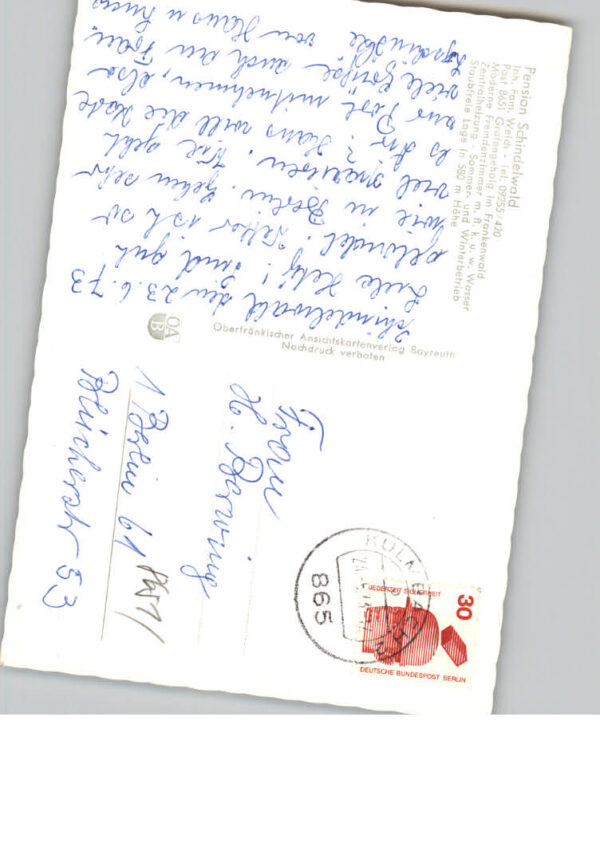 Pension Schindelwald
Inh. Fam. Welsch - Tel. 09255-420
Post 8651 Grafengehaig im Frankenwald
Moderne Fremdenzimmer m. fl. k. u. w. Wasser
Zentralheitung - Sommer- und Winterbetrieb
Staubfreie Lage in 580 m Höhe
Schindelwald den 23.6.73
Liebe Hely! Sind gut
gelandet. Wetter ist so
wie in Berlin. Gehen sehr
viel spazieren. Wie geht
es Dir? Hans will die Karte
zur Post mitnehmen, also
viele Grüße auch an Frau
von Hans u
Oberfränkischer Ansichtskartenverlag Bayreuth
Nachdruck verboten
OA
B
Frau
H. Berwing
1 Berlin 61
Blücherstr 53
KULMBACH
865
JEDERZEIT SICHERHEIT
30
DEUTSCHE BUNDESPOST BERLIN